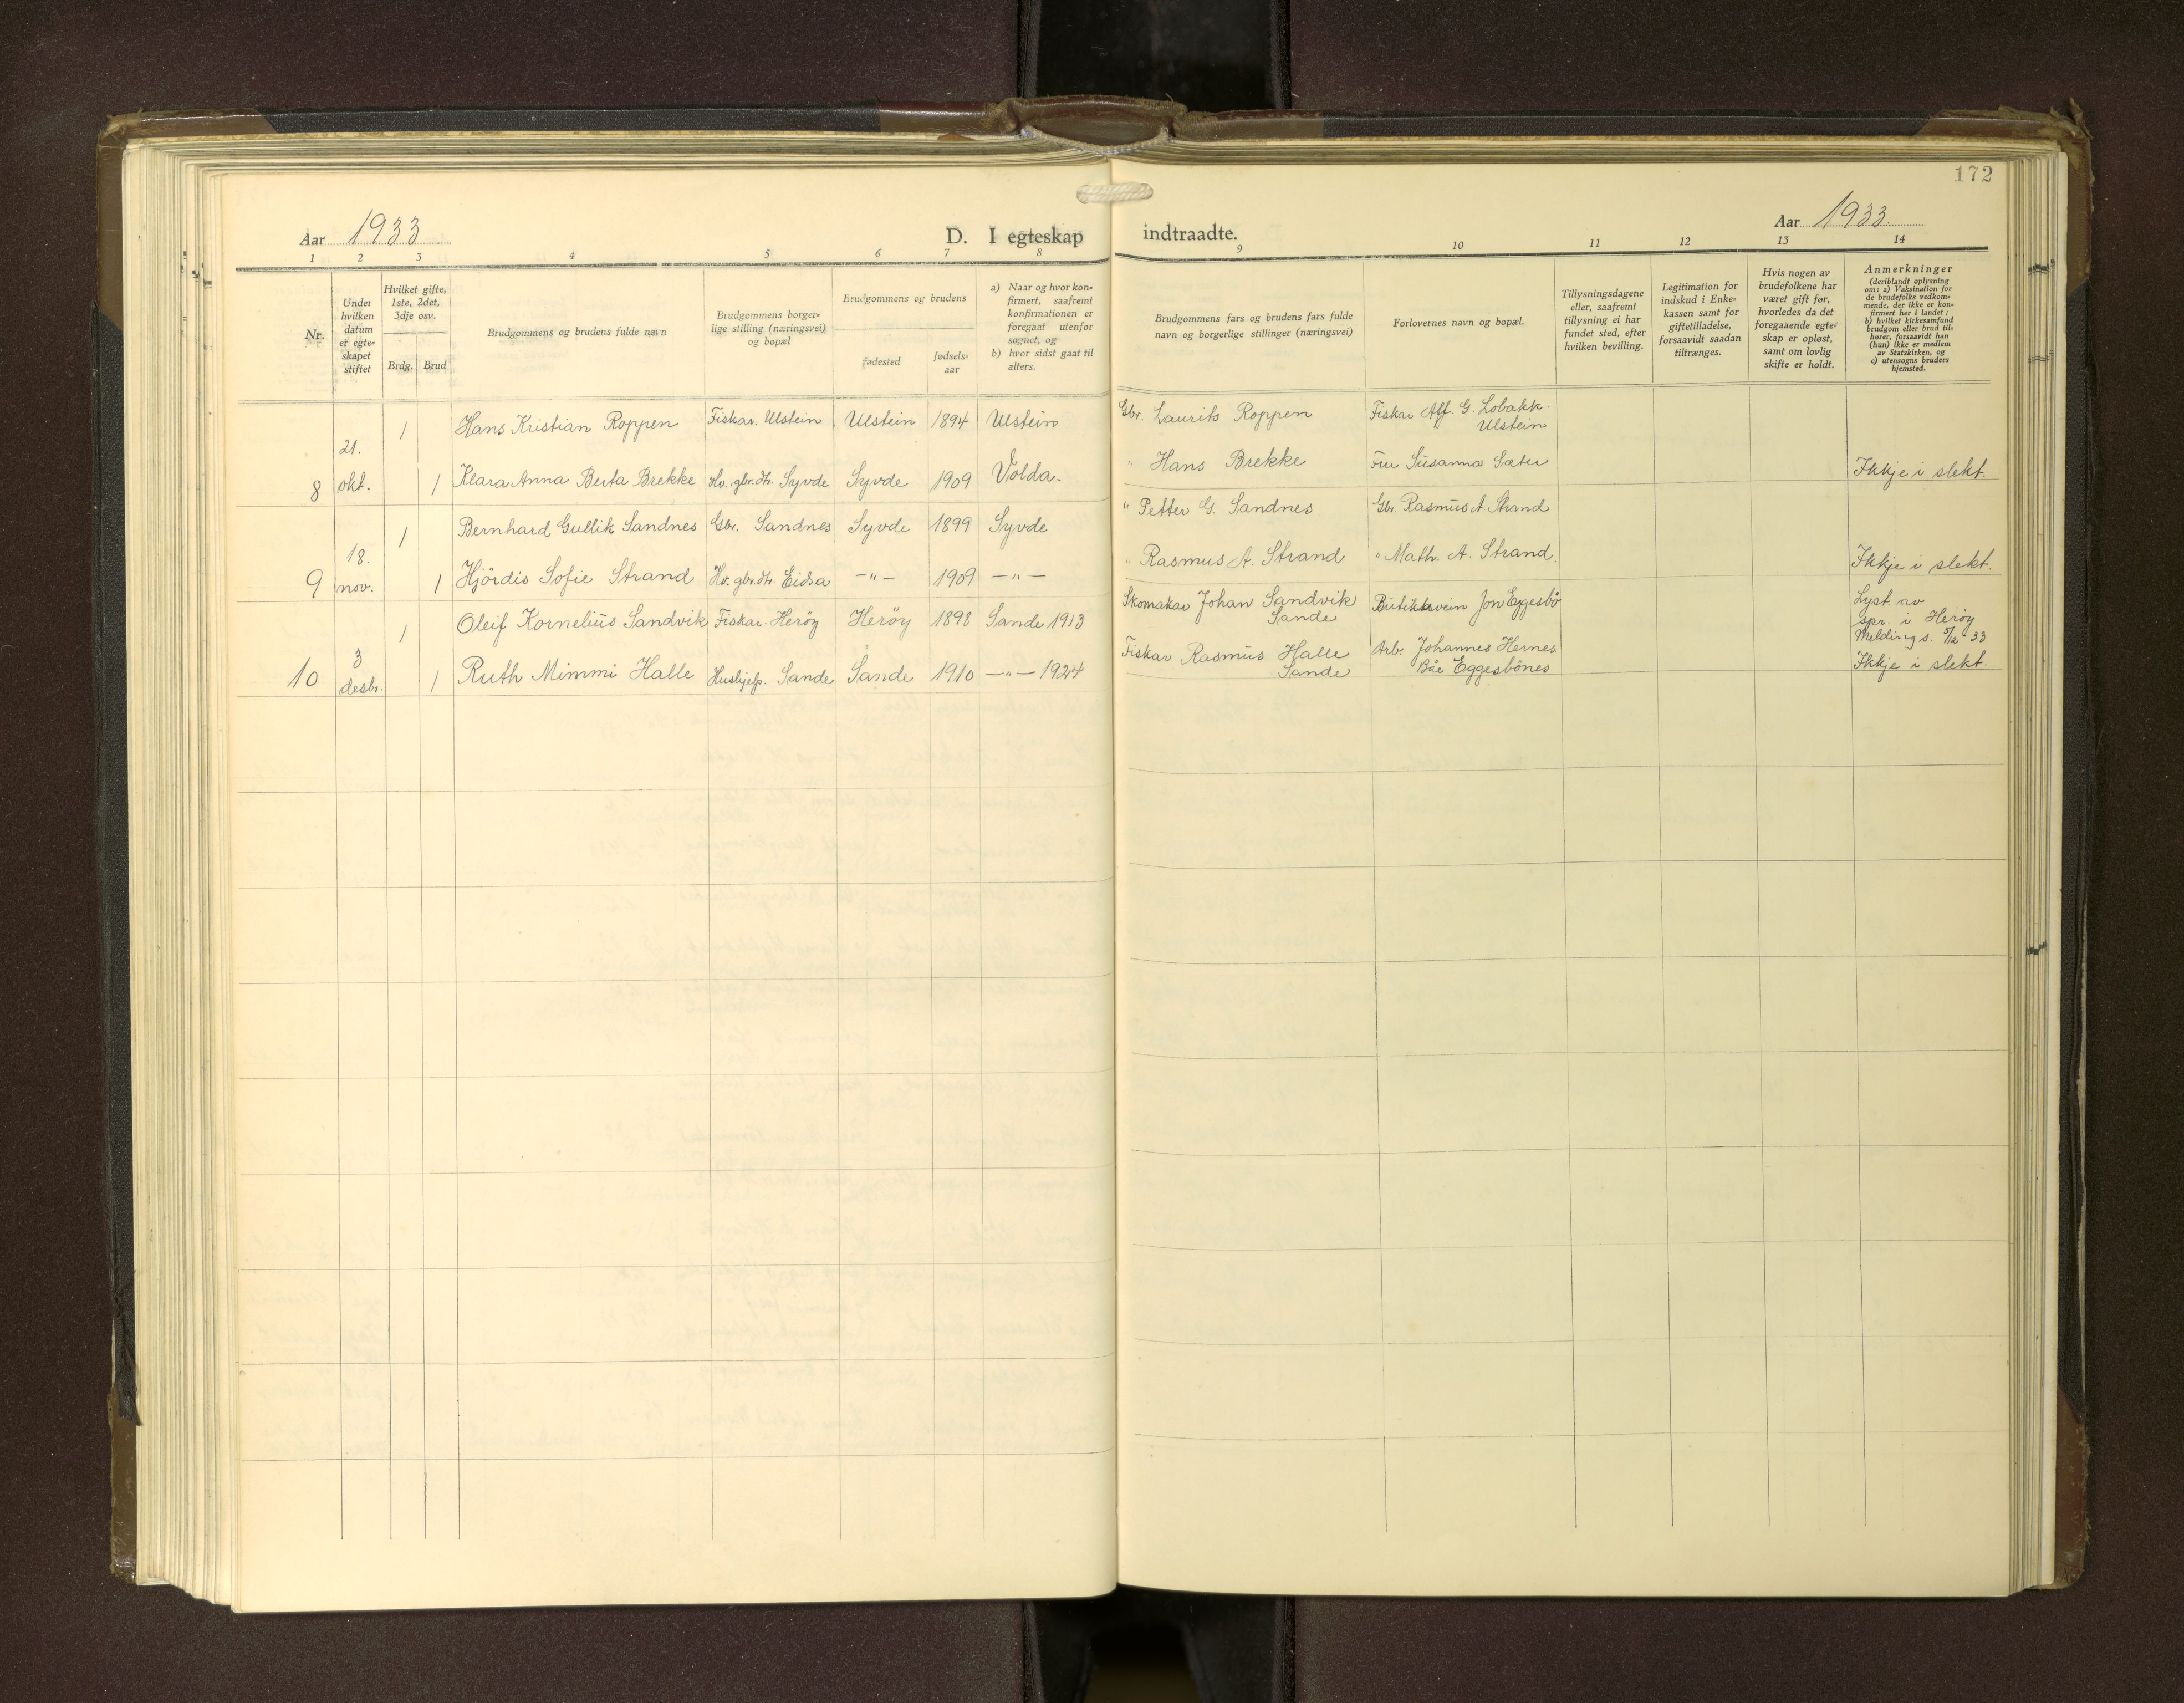 172
Aar 1933
D. I egteskap indtraadte.
Aar 1933.
1 2 3 4 5 6 7 8 9 10 11 12 13 14
Nr.
Under hvilken datum er egteskapet stiftet
Hvilket gifte, 1ste, 2det, 3dje osv.
Brdg. Brud
Brudgommens og brudens fulde navn
Brudgommens borgerlige stilling (næringsvei) og bopæl
Brudgommens og brudens
fødested
fødselsaar
a) Naar og hvor konfirmert, saafremt konfirmationen er foregaat utenfor sognet, og
b) hvor sidst gaat til alters.
Brudgommens fars og brudens fars fulde navn og borgerlige stillinger (næringsvei)
Forlovernes navn og bopæl.
Tillysningsdagene eller, saafremt tillysning ei har fundet sted, efter hvilken bevilling.
Legitimation for indskud i Enkekassen samt for giftetilladelse, forsaavidt saadan tiltrænges.
Hvis nogen av brudefolkene har været gift før, hvorledes da det foregaaende egteskap er opløst, samt om lovlig skifte er holdt.
Anmerkninger (deriblandt oplysning om: a) Vaksination for de brudefolks vedkommende, der ikke er konfirmert her i landet; b) hvilket kirkesamfund brudgom eller brud tilhører, forsaavidt han (hun) ikke er medlem av Statskirken, og c) utensogns bruders hjemsted.
1 Hans Kristian Roppen Fiskar. Ulstein Ulstein 1894 Ulstein Gbr. Laurits Roppen Fiskar Alf. G. Lobakk. Ulstein
8 21. okt. 1 Klara Anna Berta Brekke Hv. gbr.dtr. Syvde Syvde 1909 Volda. " Hans Brekke Fru Susanna Sæter Ikkje i slekt.
1 Bernhard Gullik Sandnes Gbr. Sandnes Syvde 1899 Syvde " Petter G. Sandnes Gbr. Rasmus A. Strand
9 18. nov. 1 Hjördis Sofie Strand Hv. gbr.dtr. Eidsa —"— 1909 —"— " Rasmus A. Strand " Math. A. Strand. Ikkje i slekt.
1 Oleif Kornelius Sandvik Fiskar. Heröy Heröy 1898 Sande 1913 Skomakar Johan Sandvik Sande Jon Eggesbö Lyst av spr. i Heröy Melding s. 5/12-33
10 3 desbr. 1 Ruth Mimmi Halle Hushjelp. Sande Sande 1910 —"— 1924 Fiskar Rasmus Halle Sande Arb. Johannes Hernes Båe Eggesbönes Ikkje i slekt.